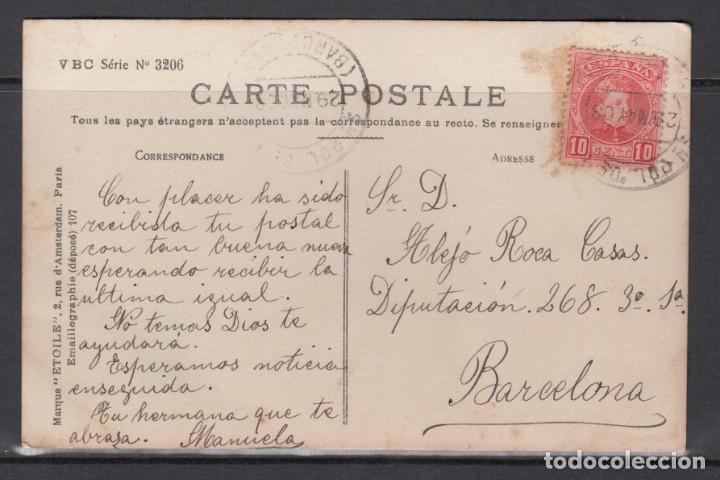 VBC Série Nº 3206
CARTE POSTALE
Tous les pays étrangers n'acceptent pas la correspondance au recto. Se renseigner
CORRESPONDANCE
ADRESSE
Con placer ha sido
recibida tu postal
con tan buena nueva
esperando recibir la
ultima igual.
No temas Dios te
ayudará.
Esperamos noticia
enseguida.
Tu hermana que te
abrasa. Manuela
Sr. D.
Alejo Roca Casas.
Diputación. 268. 3º. 1ª.
Barcelona
Marque "ETOILE", 2, rue d'Amsterdam. Paris
Emaillographie (déposé) 107
ESPAÑA
10 CENT. 10
(BARCELONA)